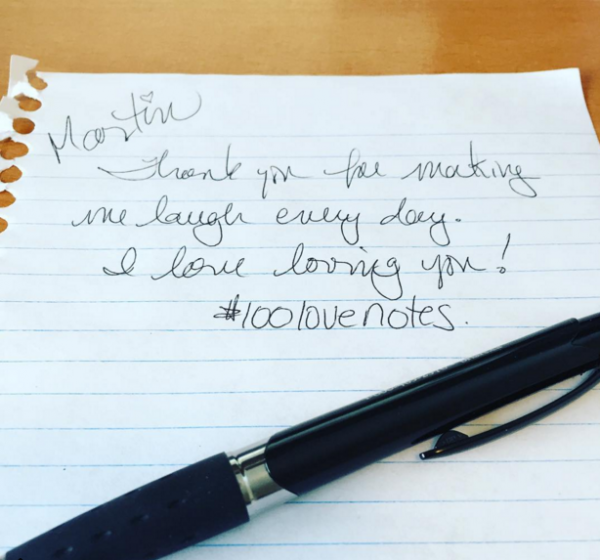 Martin
Thank you for making
me laugh every day.
I love loving you!
#100lovenotes.